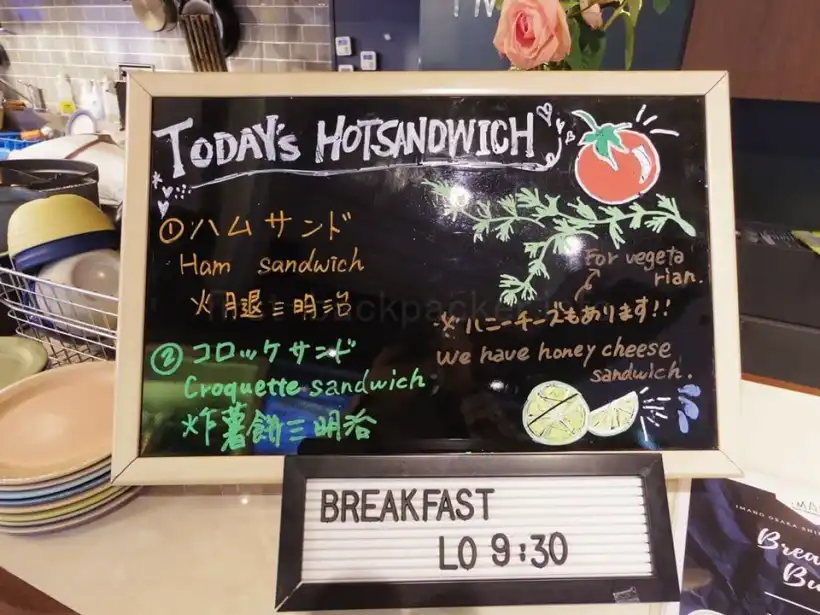 TODAY'S HOTSANDWICH
①ハムサンド
Ham sandwich
火腿三明治
②コロッケサンド
Croquette sandwich
炸薯餅三明治
For vegeta
rian.
※ハニーチーズもあります!!
We have honey cheese
sandwich.
BREAKFAST
LO 9:30
IMANO OSAKA